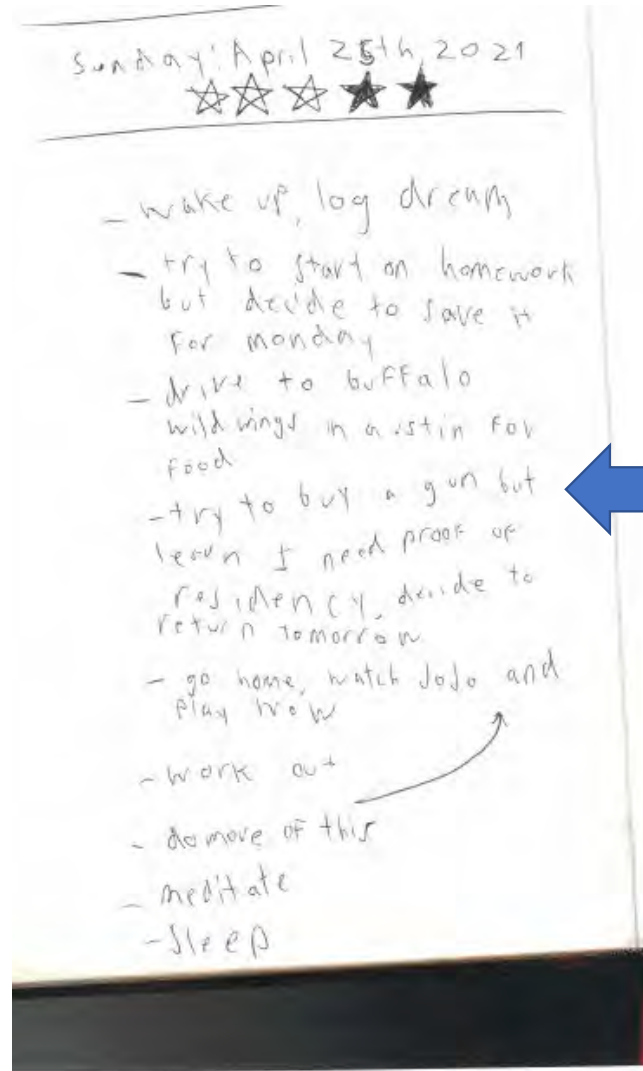 Sunday: April 25th, 2021
- wake up, log dream
- try to start on homework
but decide to save it
for monday
- drive to buffalo
wild wings in austin for
food
- try to buy a gun but
learn I need proof of
residency, decide to
return tomorrow
- go home, watch JoJo and
play
- work out
- do more of this
- meditate
- sleep